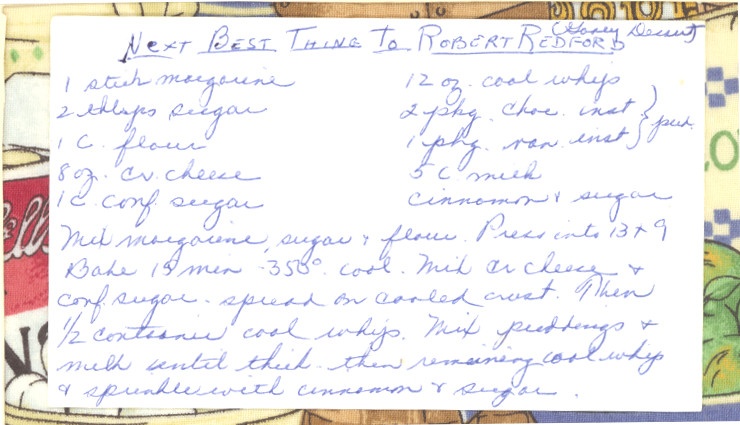 (Gooey Dessert)
Next Best Thing To Robert Redford
1 stick margarine
2 tblsps sugar
1 c. flour
8 oz. cr. cheese
1 c. conf. sugar
12 oz. cool whip
2 pkg. choc. inst } pud.
1 pkg. van. inst
5 c milk
cinnamon & sugar
Mix margarine, sugar & flour. Press into 13 x 9
Bake 15 min - 350°. cool. Mix cr cheese &
conf. sugar - spread on cooled crust. Then
1/2 container cool whip. Mix puddings &
milk until thick - then remaining cool whip
& sprinkle with cinnamon & sugar.